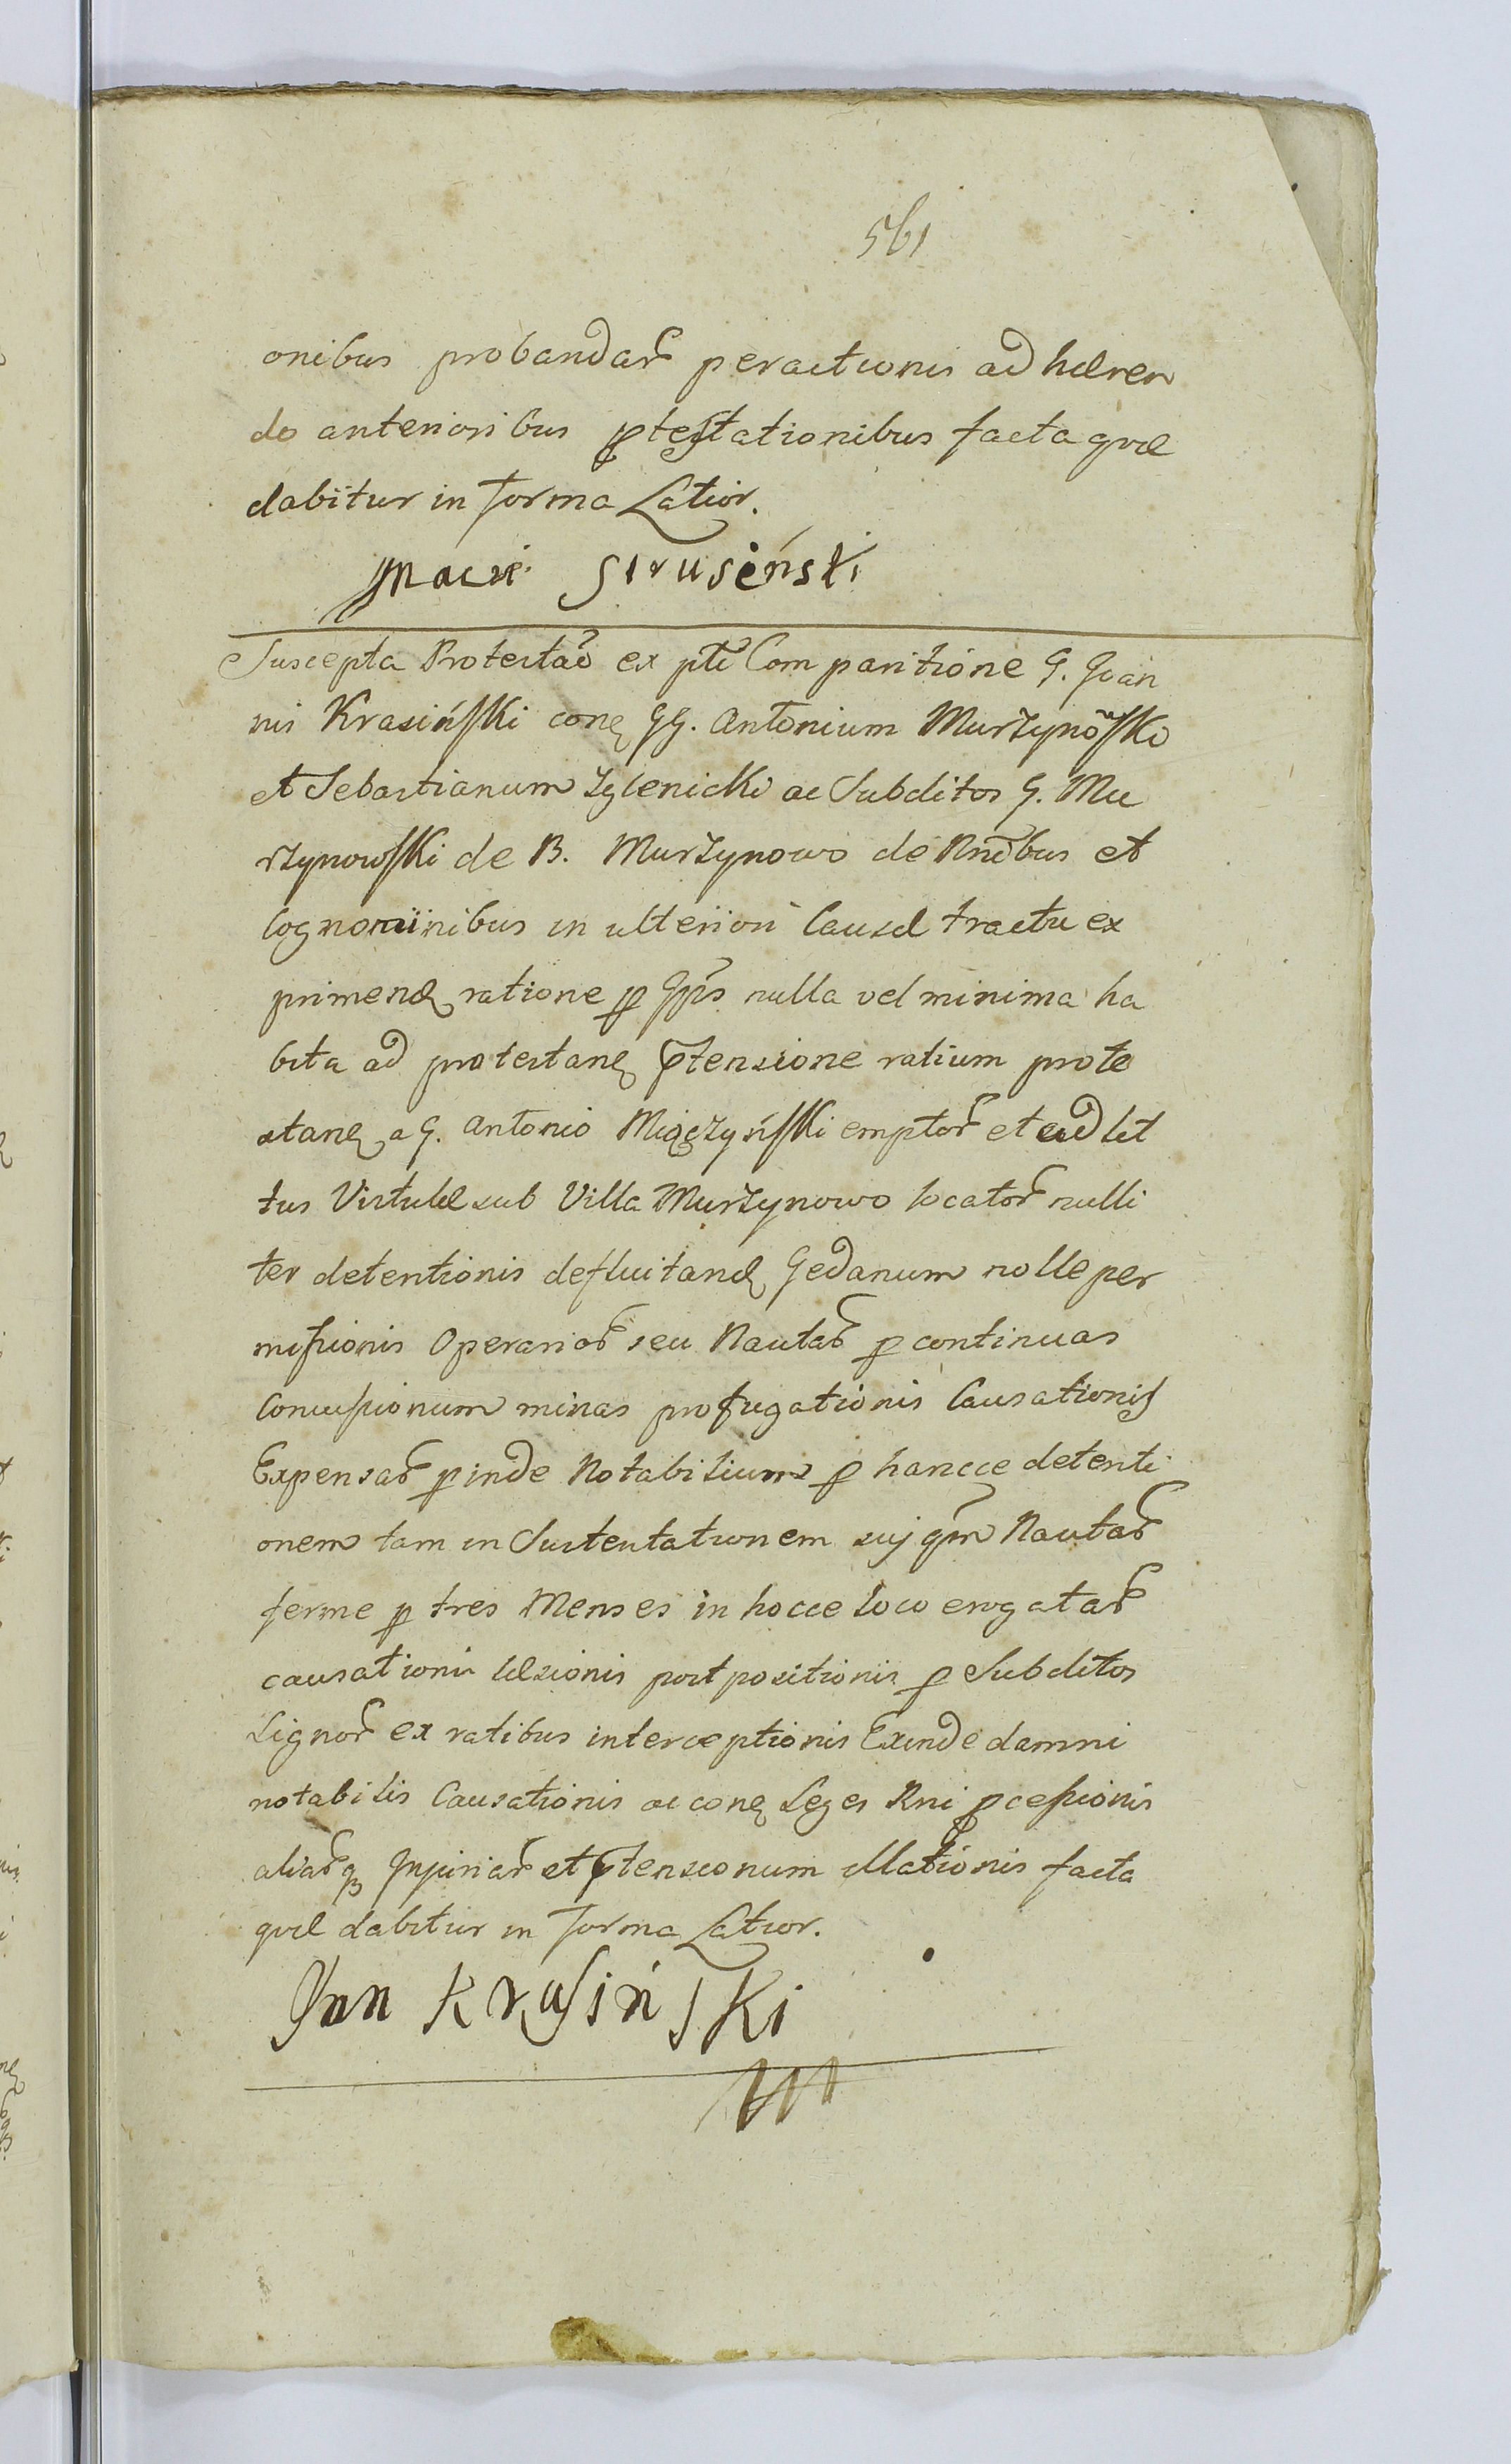 561
onibus probandar peractionis ad hæren
do anterioribus ptestationibus facta quæ
dabitur in forma Latior.
Jgnacy Strusiński
Suscepta Protestao ex pte Comparitione G. Joan
nis Krasińſki conq GG. Antonium Murzynoſki
et Sebastianum Zglenicki ac Subditos G. Mu
rzynowſki de B. Murzynowo de Nnibus et
Cognominibus in ulteriori Causæ tractu ex
primend ratione p Gppis nulla vel minima ha
bita ad protestanq ptensione ratium prote
stanq a G. Antonio Miączyńſki emptor et ad lit
tus Vistulæ sub Villa Murzynowo locator nulli
ter detentionis defluitand Gedanum nolle per
miſsionis Operarior seu Nautar p continuas
Concuſsionum minas profugationis Causationis
Expensar p inde Notabilium p hancce detenti
onem tam in Sustentationem suj qm Nautar
ferme p tres Menses in hocce loco erogatar
causationis læsionis postpositionis p Subditos
Lignor ex ratibus interceptionis Exinde damni
notabilis Causationis ac conq Leges Rni pceſsionis
aliarq Injuriar et ptensionum illationis facta
quæ dabitur in forma Latior.
Jan Kraſińſki